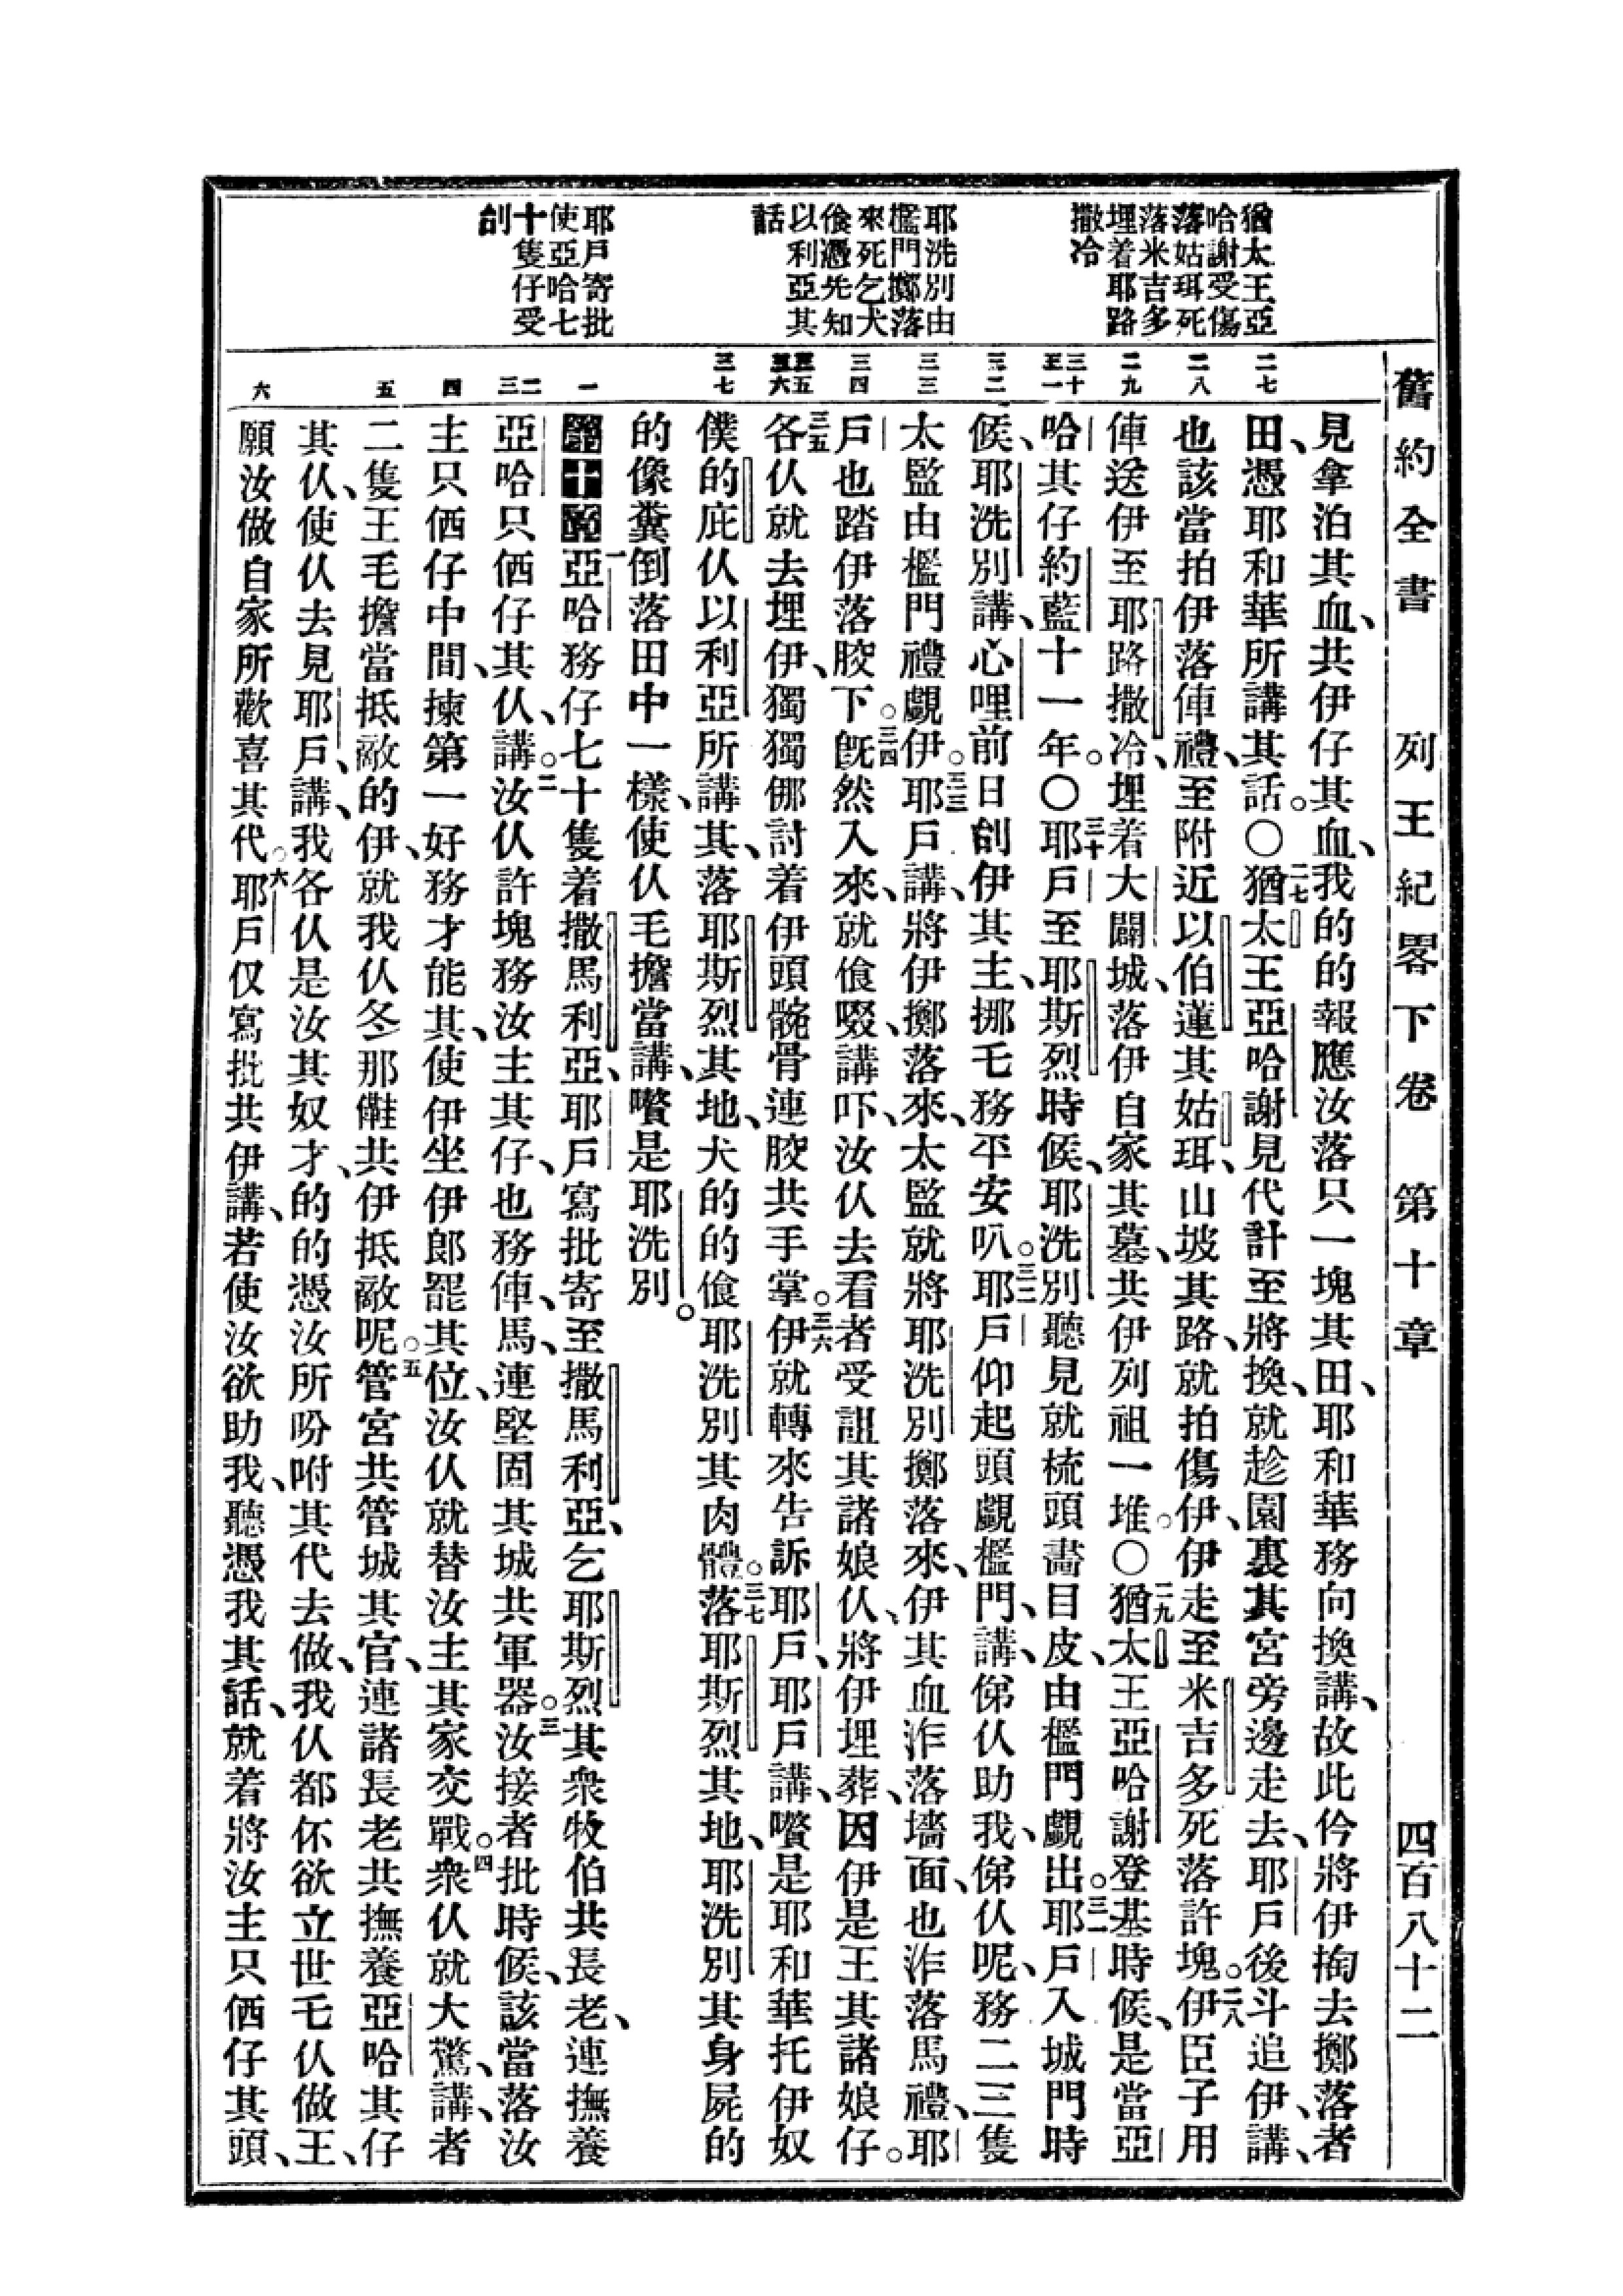 舊約全書 列王紀畧下卷 第十章 四百八十二
猶太王亞
哈謝受傷
落姑珥死
落米吉多
埋着耶路
撒冷
耶洗別由
檻門擲落
來死乞犬
偷憑先知
以利亞其
話
耶戶寄批
使亞哈七
十隻仔受
刣
二七
二八
二九
三十
三一
三二
三三
三四
三五
三六
三七
一
二
三
四
五
六
見拿泊其血、共伊仔其血、我的的報應汝落只一塊其田、耶和華務向換講、故此伱將伊掏去擲落者
田、憑耶和華所講其話。〇二七猶太王亞哈謝見代計至將換、就趁園裏其宮旁邊走去、耶戶後斗追伊、講、
也該當拍伊落俥禮、至附近以伯蓮其姑珥、山坡其路、就拍傷伊、伊走至米吉多死落許塊。二八伊臣子用
俥送伊至耶路撒冷、埋着大闢城、落伊自家其墓、共伊列祖一堆。〇二九猶太王亞哈謝登基時候、是當亞
哈其仔約藍十一年。〇三十耶戶至耶斯烈時候、耶洗別聽見就梳頭畵目皮、由檻門覷出。三一耶戶入城門時
候、耶洗別講、心哩前日刣伊其主、挪乇務平安叭。三二耶戶仰起頭覷檻門、講、俤仈助我、俤仈呢、務二三隻
太監由檻門禮覷伊。三三耶戶講、將伊擲落來、太監就將耶洗別擲落來、伊其血泎落墻面、也泎落馬禮、耶
戶也踏伊落骹下。三四旣然入來、就偷啜、講吓、汝仈去看者受詛其諸娘仈、將伊埋葬、因伊是王其諸娘仔。
三五各仈就去埋伊、獨獨倻討着伊頭髗骨連骹共手掌。三六伊就轉來告訴耶戶、耶戶講、囋是耶和華托伊奴
僕的庇仈以利亞所講其、落耶斯烈其地、犬的的偷耶洗別其肉體。三七落耶斯烈其地、耶洗別其身屍的
的像糞倒落田中一樣、使仈毛擔當講、囋是耶洗別。
第十章 一亞哈務仔七十隻着撒馬利亞、耶戶寫批寄至撒馬利亞、乞耶斯烈其衆牧伯共長老、連撫養
亞哈只仾仔其仈、講。二汝仈許塊務汝主其仔、也務俥、馬、連堅固其城共軍器。三汝接者批時候、該當落汝
主只仾仔中間、揀第一好務才能其、使伊坐伊郎罷其位、汝仈就替汝主其家交戰。四衆仈就大驚、講、者
二隻王毛擔當抵敵的伊、就我仈冬那𠊎共伊抵敵呢。五管宮共管城其官、連諸長老共撫養亞哈其仔
其仈、使仈去見耶戶、講、我各仈是汝其奴才、的的憑汝所吩咐其代去做、我仈都伓欲立世乇仈做王、
願汝做自家所歡喜其代。六耶戶仅寫批共伊講、若使汝欲助我、聽憑我其話、就着將汝主只仾仔其頭、